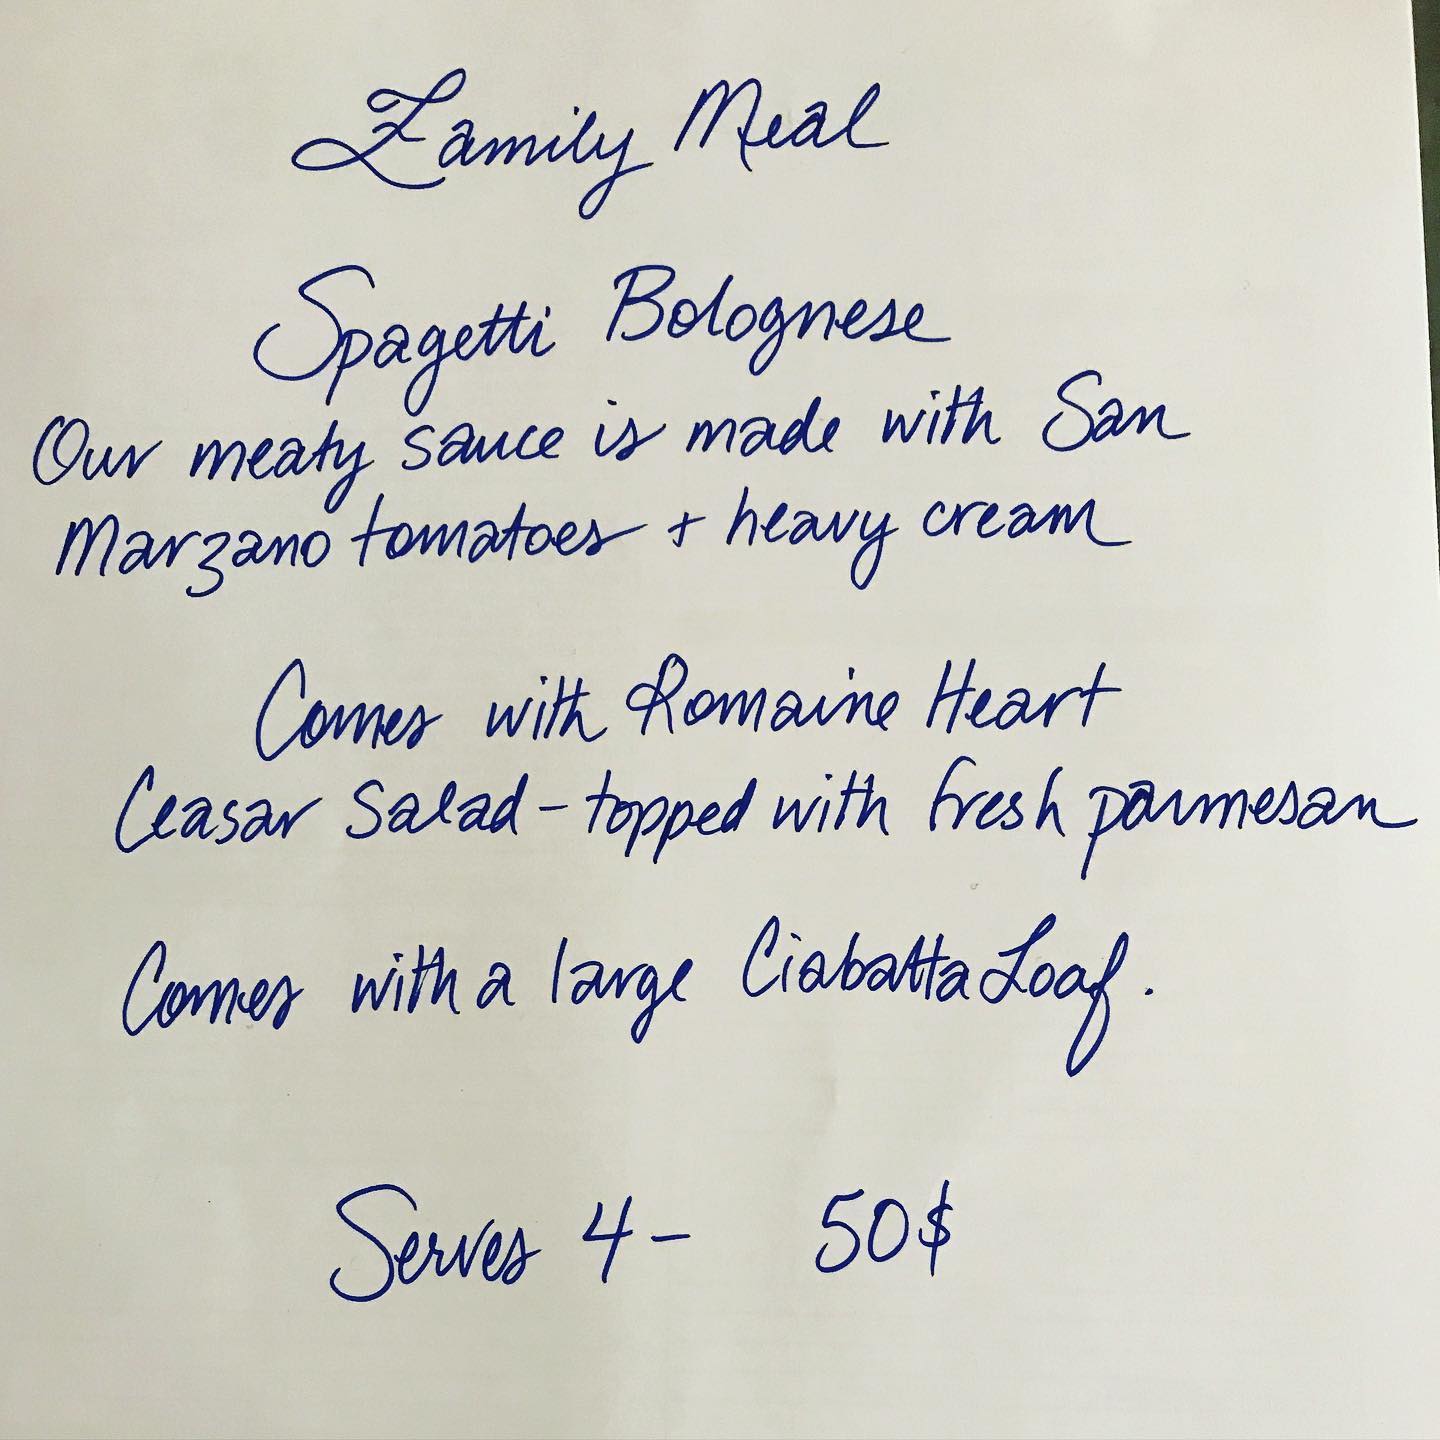 Family Meal
Spagetti Bolognese
Our meaty sauce is made with San
Marzano tomatoes + heavy cream
Comes with Romaine Heart
Ceasar Salad - topped with fresh parmesan
Comes with a large Ciabatta Loaf.
Serves 4 - 50$